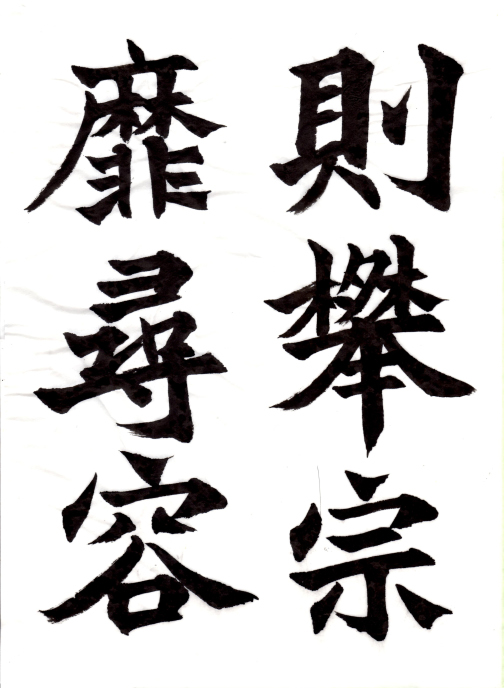 則攀宗
靡尋容